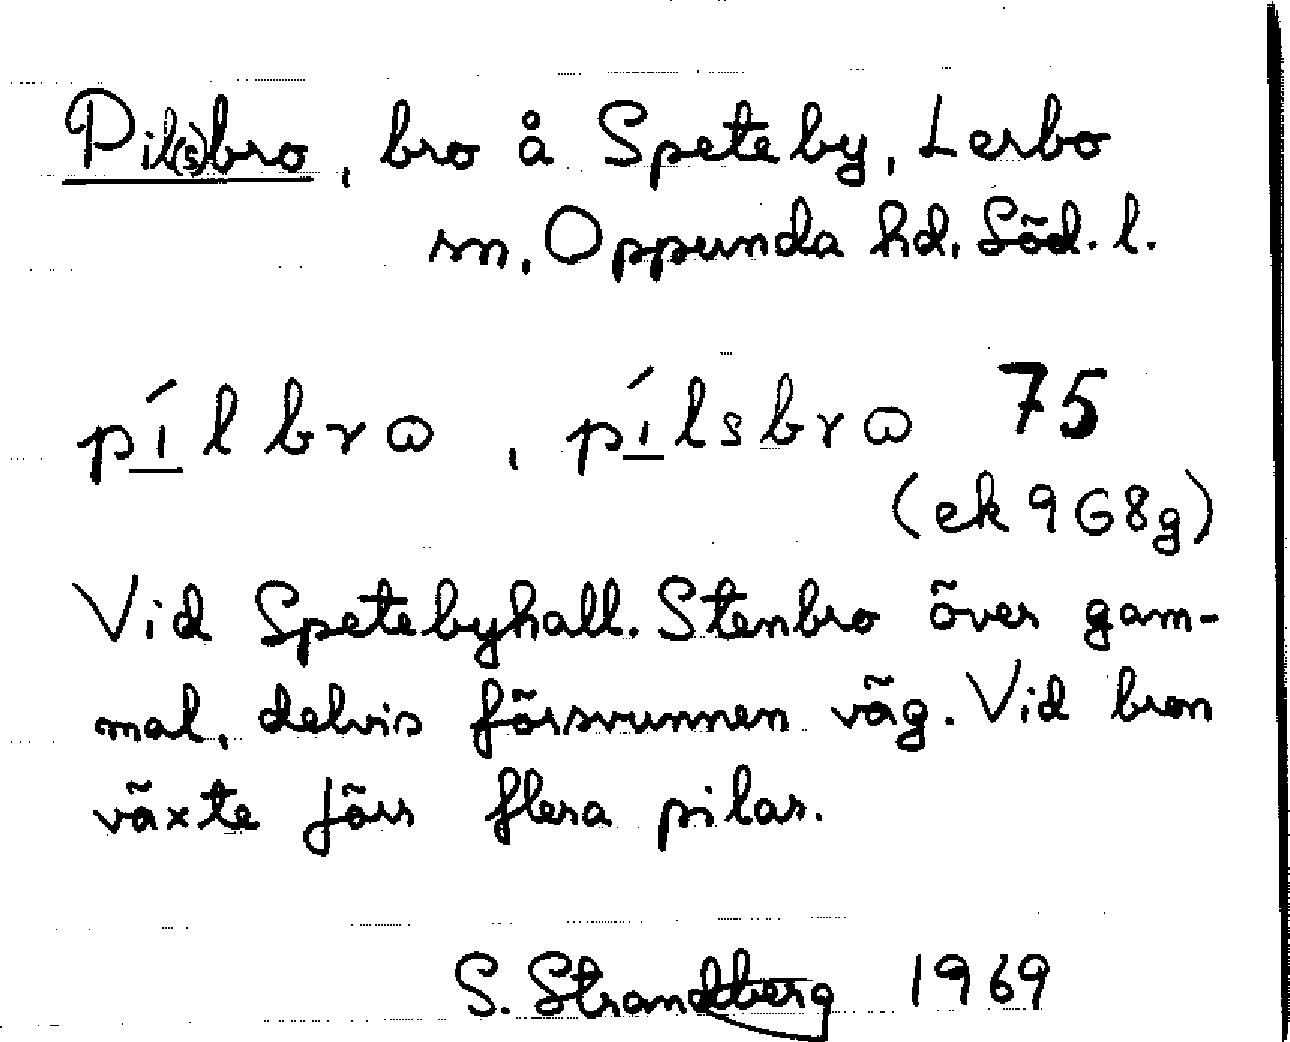 Pil(s)bro, bro å Speteby, Lerbo
sn, Oppunda hd, Söd. l.
pı́lbrɷ, pı́lsbrɷ 75
(ek 9 G8g)
Vid Spetebyhall. Stenbro över gam-
mal, delvis försvunnen väg. Vid bron
växte förr flera pilar.
S. Strandberg 1969